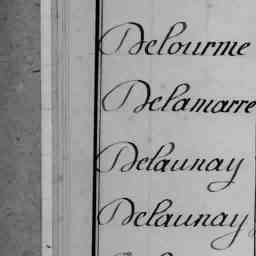 Delourme
Delamarre
Delaunay
Delaunay